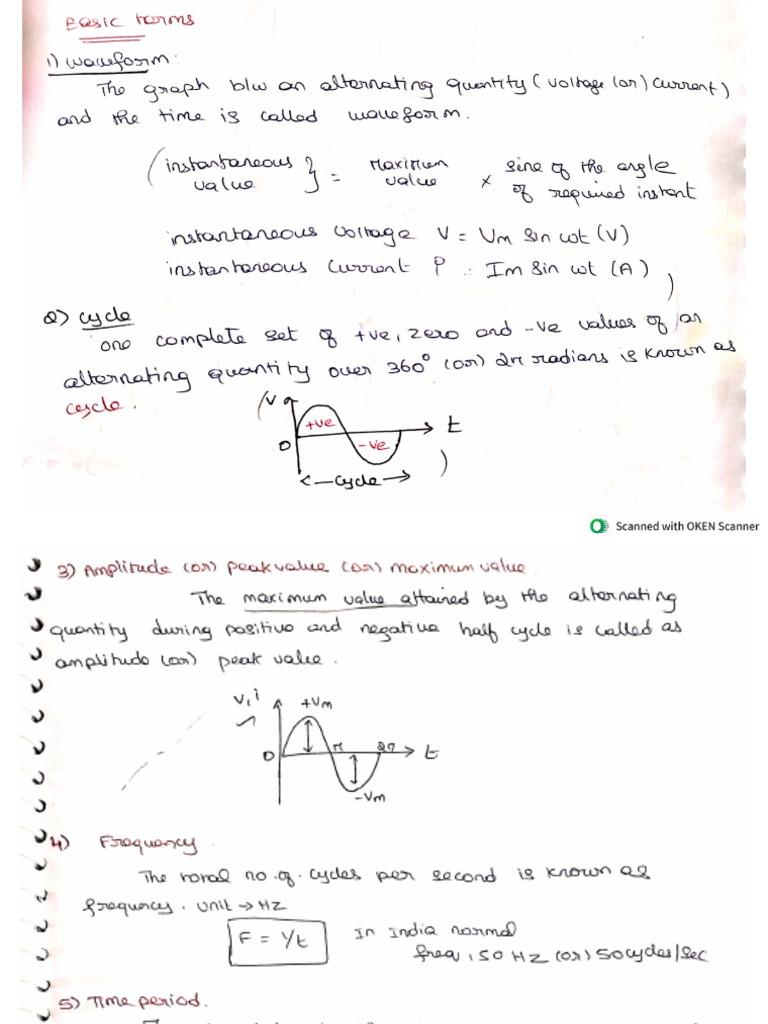 Basic terms
1) Waveform:
The graph b/w an alternating quantity (voltage (or) current)
and the time is called waveform.
(instantaneous value } = maximum value × sine of the angle of required instant
instantaneous voltage V = Vm Sin wt (V)
instantaneous current i = Im Sin wt (A) )
2) cycle
one complete set of +ve, zero and -ve values of an
alternating quantity over 360° (or) 2π radians is known as
cycle.
(V
+ve
t
0
-ve
<—cycle—> )
Scanned with OKEN Scanner
3) Amplitude (or) peak value (or) maximum value
The maximum value attained by the alternating
quantity during positive and negative half cycle is called as
amplitude (or) peak value.
V, i
+Vm
0
π
2π
t
-Vm
4) Frequency.
The total no. of. cycles per second is known as
frequency. unit → HZ
F = 1/t
In India normal
freq, 50 HZ (or) 50 cycles/sec
5) Time period.